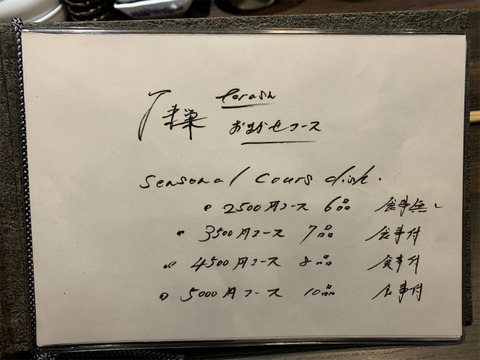 torash
おまかせコース
Seasonal cours dish.
2500円コース 6品 食事無し
3500円コース 7品 食事付
4500円コース 8品 食事付
5000円コース 10品 食事付